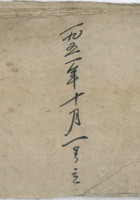 一九五一年十月一号立